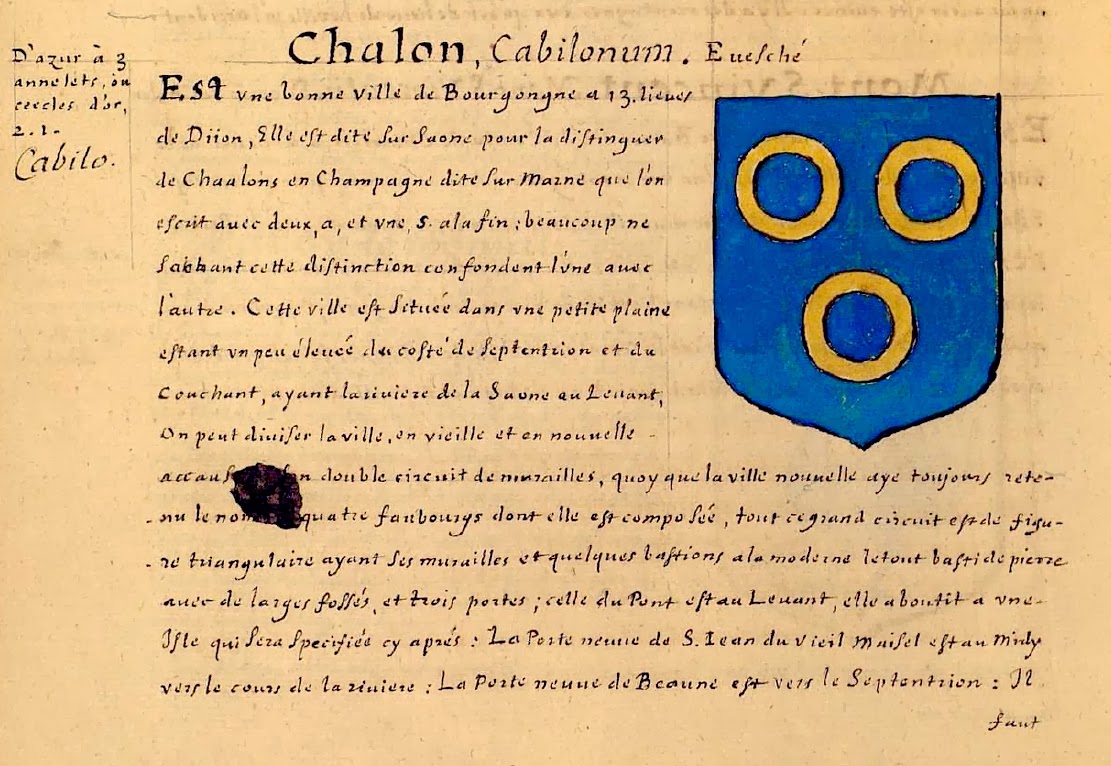 Chalon, Cabilonum. Euesché
D'azur à 3
annelets, ou
cercles d'or,
2.1.
Cabilo.
Est vne bonne ville de Bourgongne a 13. lieues
de Diion, Elle est dite sur Saone pour la distinguer
de Chaalons en Champagne dite sur Marne que l'on
escrit auec deux, a, et vne, s. a la fin; beaucoup ne
sachant cette distinction confondent l'vne auec
l'autre. Cette ville est située dans vne petite plaine
estant vn peu éleueé du costé de septentrion et du
Couchant, ayant la riuiere de la Saone au Leuant,
On peut diuiser la ville, en vieille et en nouuelle
double circuit de murailles, quoy que la ville nouuelle aye toujours rete-
nu le quatre faubourgs dont elle est composée, tout ce grand circuit est de figu-
re triangulaire ayant ses murailles et quelques bastions a la moderne le tout basti de pierre
auec de larges fossés, et trois portes; celle du Pont est au Leuant, elle aboutit a vne
Isle qui sera specifiée cy aprés: La Porte neuue de S. Iean du Vieil Maisel est au Midy
vers le cours de la riuiere: La Porte neuue de Beaune est vers le Septentrion: Il
faut